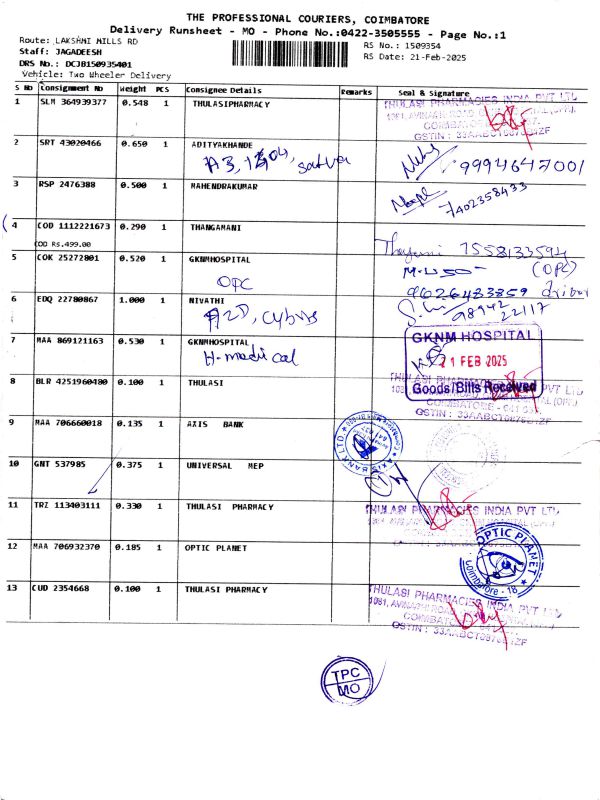 THE PROFESSIONAL COURIERS, COIMBATORE
Delivery Runsheet - MO - Phone No.:0422-3505555 - Page No.:1
Route: LAKSHMI MILLS RD
RS No.: 1509354
Staff: JAGADEESH
RS Date: 21-Feb-2025
DRS No.: DCJB150935401
Vehicle: Two Wheeler Delivery
S No Consignment No Weight PCS Consignee Details Remarks Seal & Signature
1 SLM 364939377 0.548 1 THULASIPHARMACY
THULASI PHARMACIES INDIA PVT LTD
2 SRT 43020466 0.650 1 ADITYAKHANDE
9994647001
3 RSP 2476388 0.500 1 MAHENDRAKUMAR
7402358433
4 COD 1112221673 0.290 1 THANGAMANI
COD RS.499.00
7558133594
5 COK 25272801 0.520 1 GKNMHOSPITAL
OPC
(OPC)
9626483859
6 EDQ 22780867 1.000 1 NIVATHI
98942
22117
7 MAA 869121163 0.530 1 GKNMHOSPITAL
H-medical
GKNM HOSPITAL
21 FEB 2025
Goods/Bills Received
8 BLR 4251960480 0.100 1 THULASI
9 MAA 706660018 0.135 1 AXIS BANK
AXIS BANK LTD.
10 GNT 537985 0.375 1 UNIVERSAL MEP
11 TRZ 113403111 0.330 1 THULASI PHARMACY
THULASI PHARMACIES INDIA PVT LTD
12 MAA 706932370 0.185 1 OPTIC PLANET
OPTIC PLANET
Coimbatore - 18
13 CUD 2354668 0.100 1 THULASI PHARMACY
THULASI PHARMACIES INDIA PVT LTD
TPC
MO